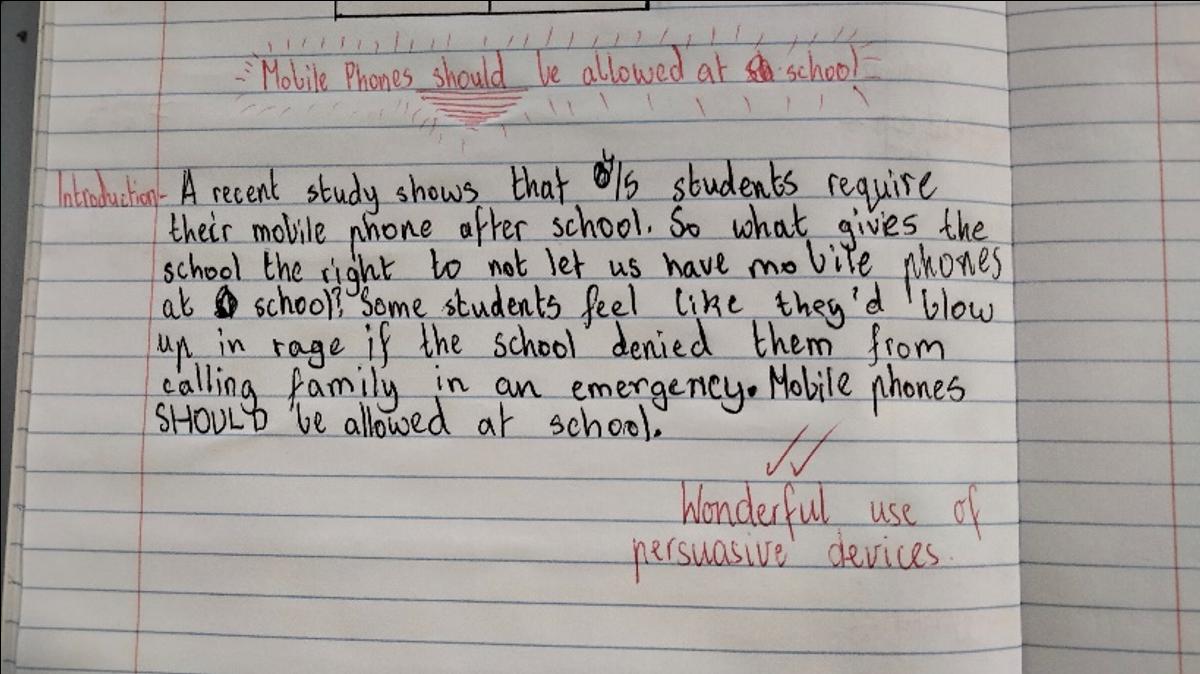 Mobile Phones should be allowed at school
Introduction- A recent study shows that 4/5 students require
their mobile phone after school. So what gives the
school the right to not let us have mobile phones
at school? Some students feel like they'd blow
up in rage if the school denied them from
calling family in an emergency. Mobile phones
SHOULD be allowed at school.
Wonderful use of
persuasive devices.